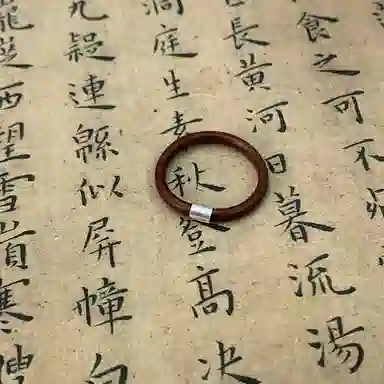 食之可不
長黃河日暮流湯
洞庭生春秋登高決
九疑連緜似屏幛向
西望雪嶺寒